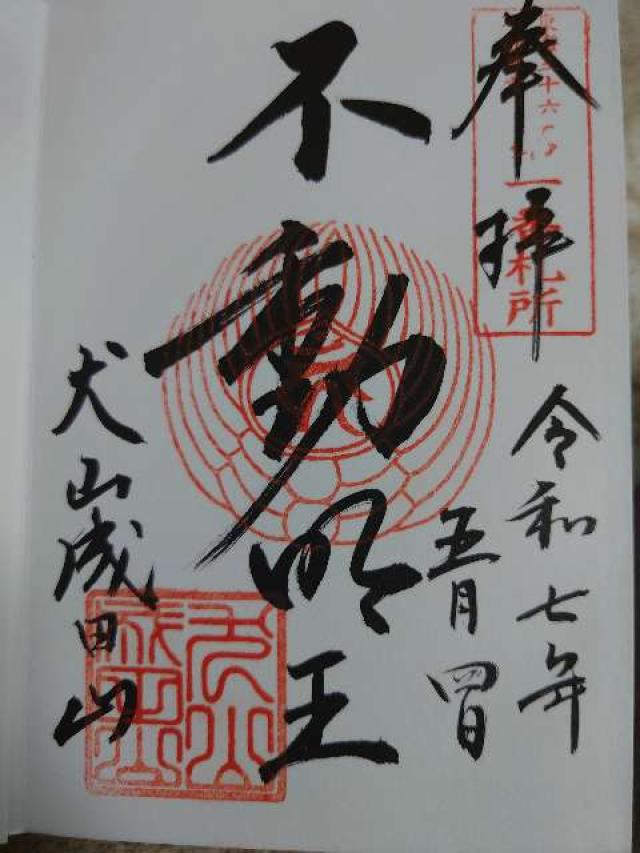 奉拝
札所
令和七年
五月四日
不動明王
犬山成田山